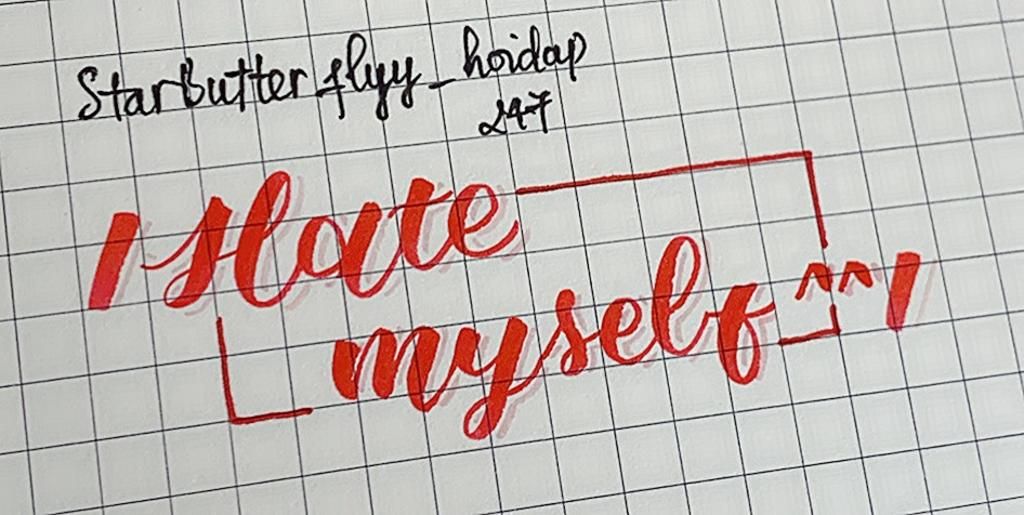 StarButterflyy_hoidap
247
I Hate
myself ^^ I